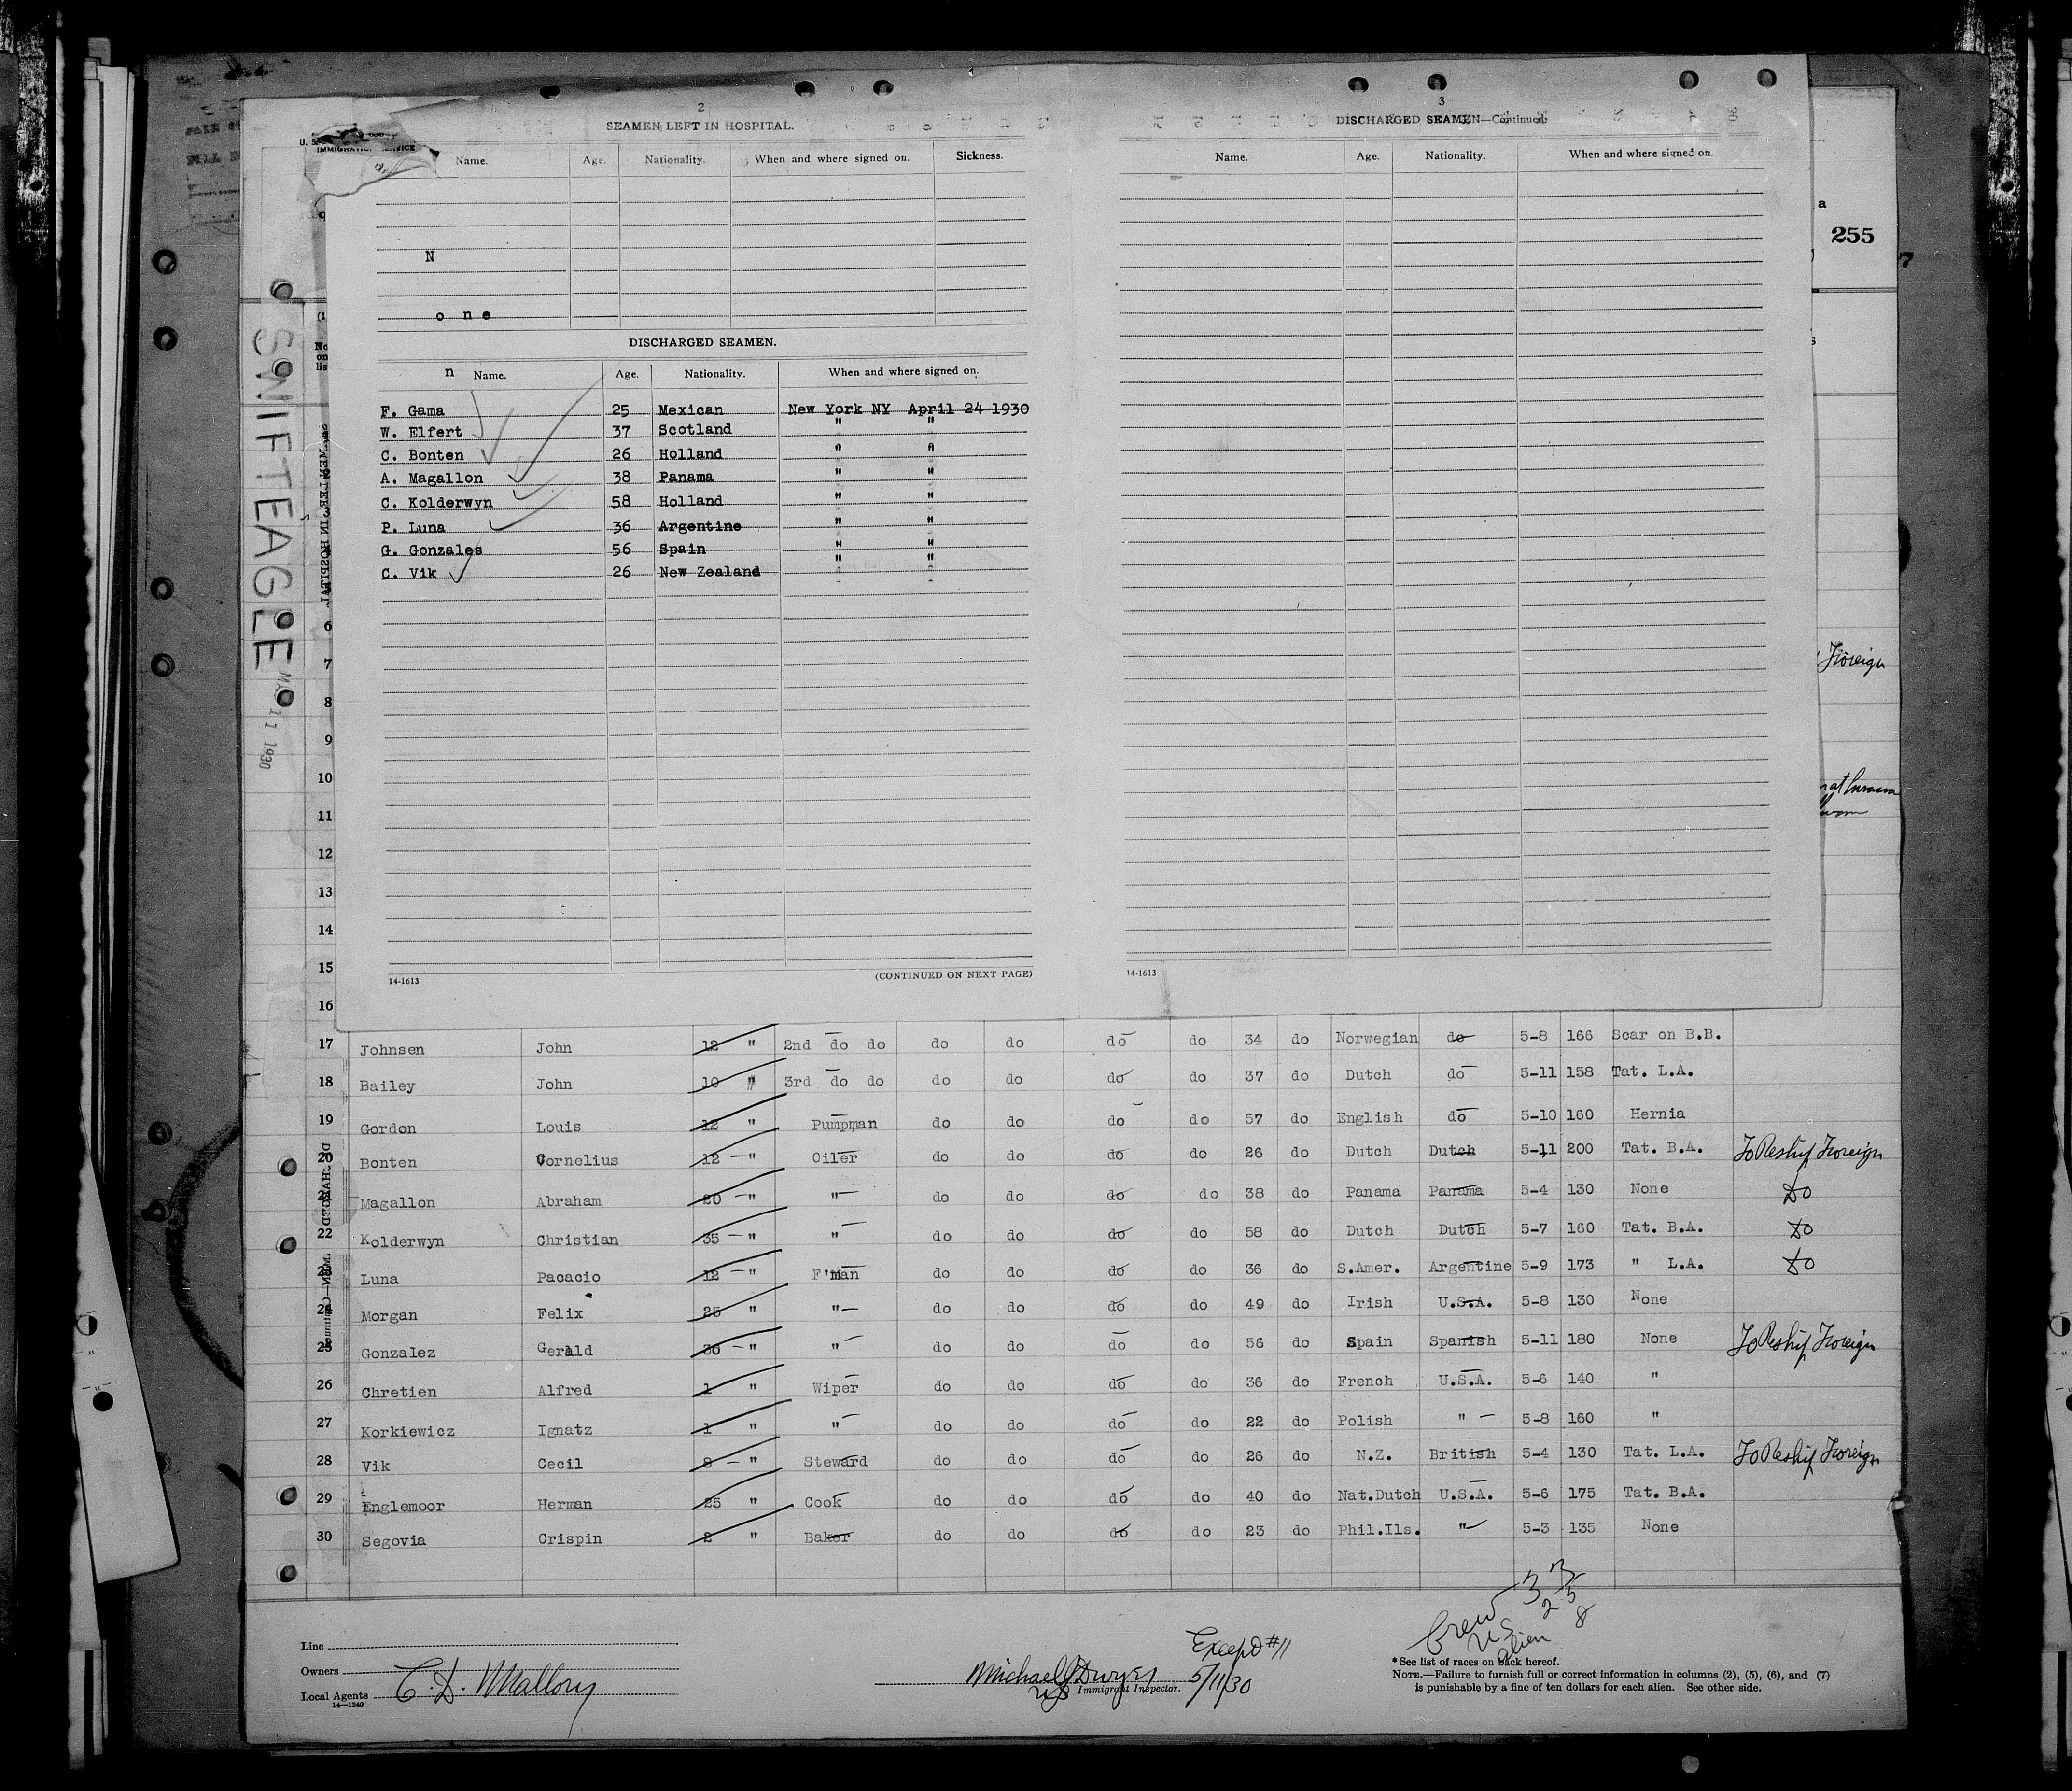 2
SEAMEN LEFT IN HOSPITAL.
U. S.
IMMIGRATION SERVICE
Name. Age. Nationality. When and where signed on. Sickness.
N
o n e
DISCHARGED SEAMEN.
n Name. Age. Nationality. When and where signed on.
F. Gama 25 Mexican New York NY April 24 1930
W. Elfert 37 Scotland " "
C. Bonten 26 Holland " "
A. Magallon 38 Panama " "
C. Kolderwyn 58 Holland " "
P. Luna 36 Argentine " "
G. Gonzales 56 Spain " "
C. Vik 26 New Zealand " "
14-1613 (CONTINUED ON NEXT PAGE)
3
DISCHARGED SEAMEN—Continued.
Name. Age. Nationality. When and where signed on.
14-1613
a
255
7
Foreign
SWIFTEAGLE
11 1930
No
on
lis
6
7
8
9
10
11
12
13
14
15
16
17 Johnsen John 12 " 2nd do do do do do do 34 do Norwegian do 5-8 166 Scar on B.B.
18 Bailey John 10 " 3rd do do do do do do 37 do Dutch do 5-11 158 Tat. L.A.
19 Gordon Louis 12 " Pumpman do do do do 57 do English do 5-10 160 Hernia
20 Bonten Cornelius 12 " Oiler do do do do 26 do Dutch Dutch 5-11 200 Tat. B.A. To Reship Foreign
21 Magallon Abraham 20 " " do do do do 38 do Panama Panama 5-4 130 None Do
22 Kolderwyn Christian 35 " " do do do do 58 do Dutch Dutch 5-7 160 Tat. B.A. Do
23 Luna Pacacio 12 " F'man do do do do 36 do S.Amer. Argentine 5-9 173 " L.A. Do
24 Morgan Felix 25 " " do do do do 49 do Irish U.S.A. 5-8 130 None
25 Gonzalez Gerald 30 " " do do do do 56 do Spain Spanish 5-11 180 None To Reship Foreign
26 Chretien Alfred 1 " Wiper do do do do 36 do French U.S.A. 5-6 140 "
27 Korkiewicz Ignatz 1 " " do do do do 22 do Polish " 5-8 160 "
28 Vik Cecil 8 " Steward do do do do 26 do N.Z. British 5-4 130 Tat. L.A. To Reship Foreign
29 Englemoor Herman 25 " Cook do do do do 40 do Nat.Dutch U.S.A. 5-6 175 Tat. B.A.
30 Segovia Crispin 2 " Baker do do do do 23 do Phil.Ils. " 5-3 135 None
Crew 33
US 25
alien 8
Line
Owners
Local Agents C. D. Mallory
14—1240
Except #11
Michael J Dwyer 5/11/30
US Immigrant Inspector.
*See list of races on back hereof.
NOTE.—Failure to furnish full or correct information in columns (2), (5), (6), and (7)
is punishable by a fine of ten dollars for each alien. See other side.